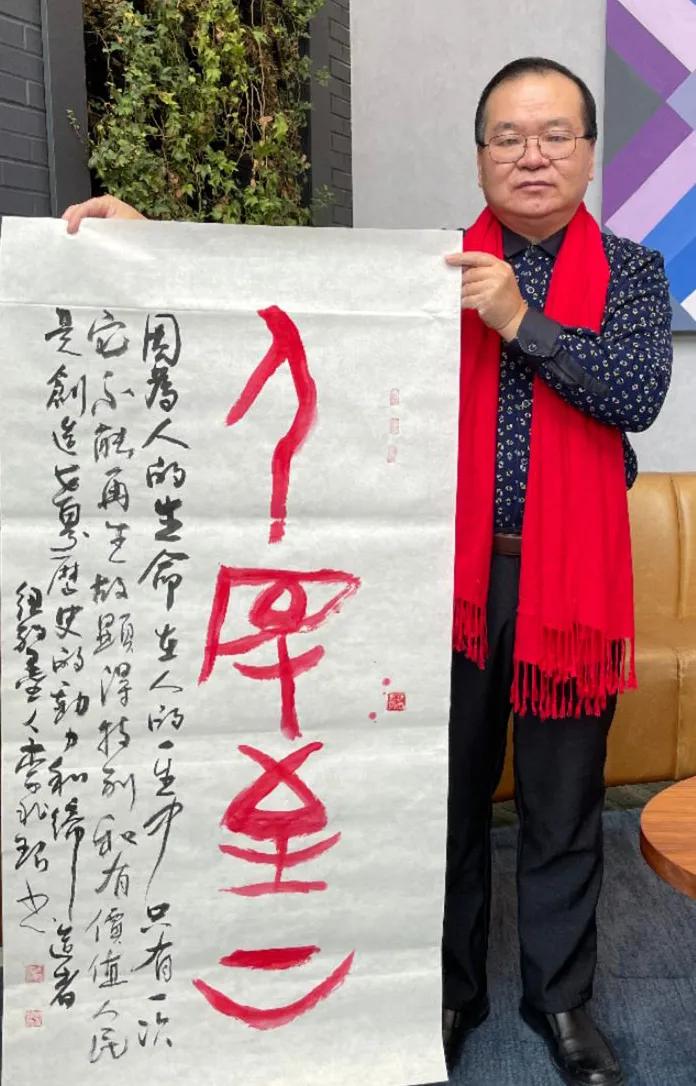 人民至上
因為人的生命在人的一生中只有一次
它不能再生故顯得特別和有價值人民
是創造世界歷史的動力和締造者
紐約墨人李书